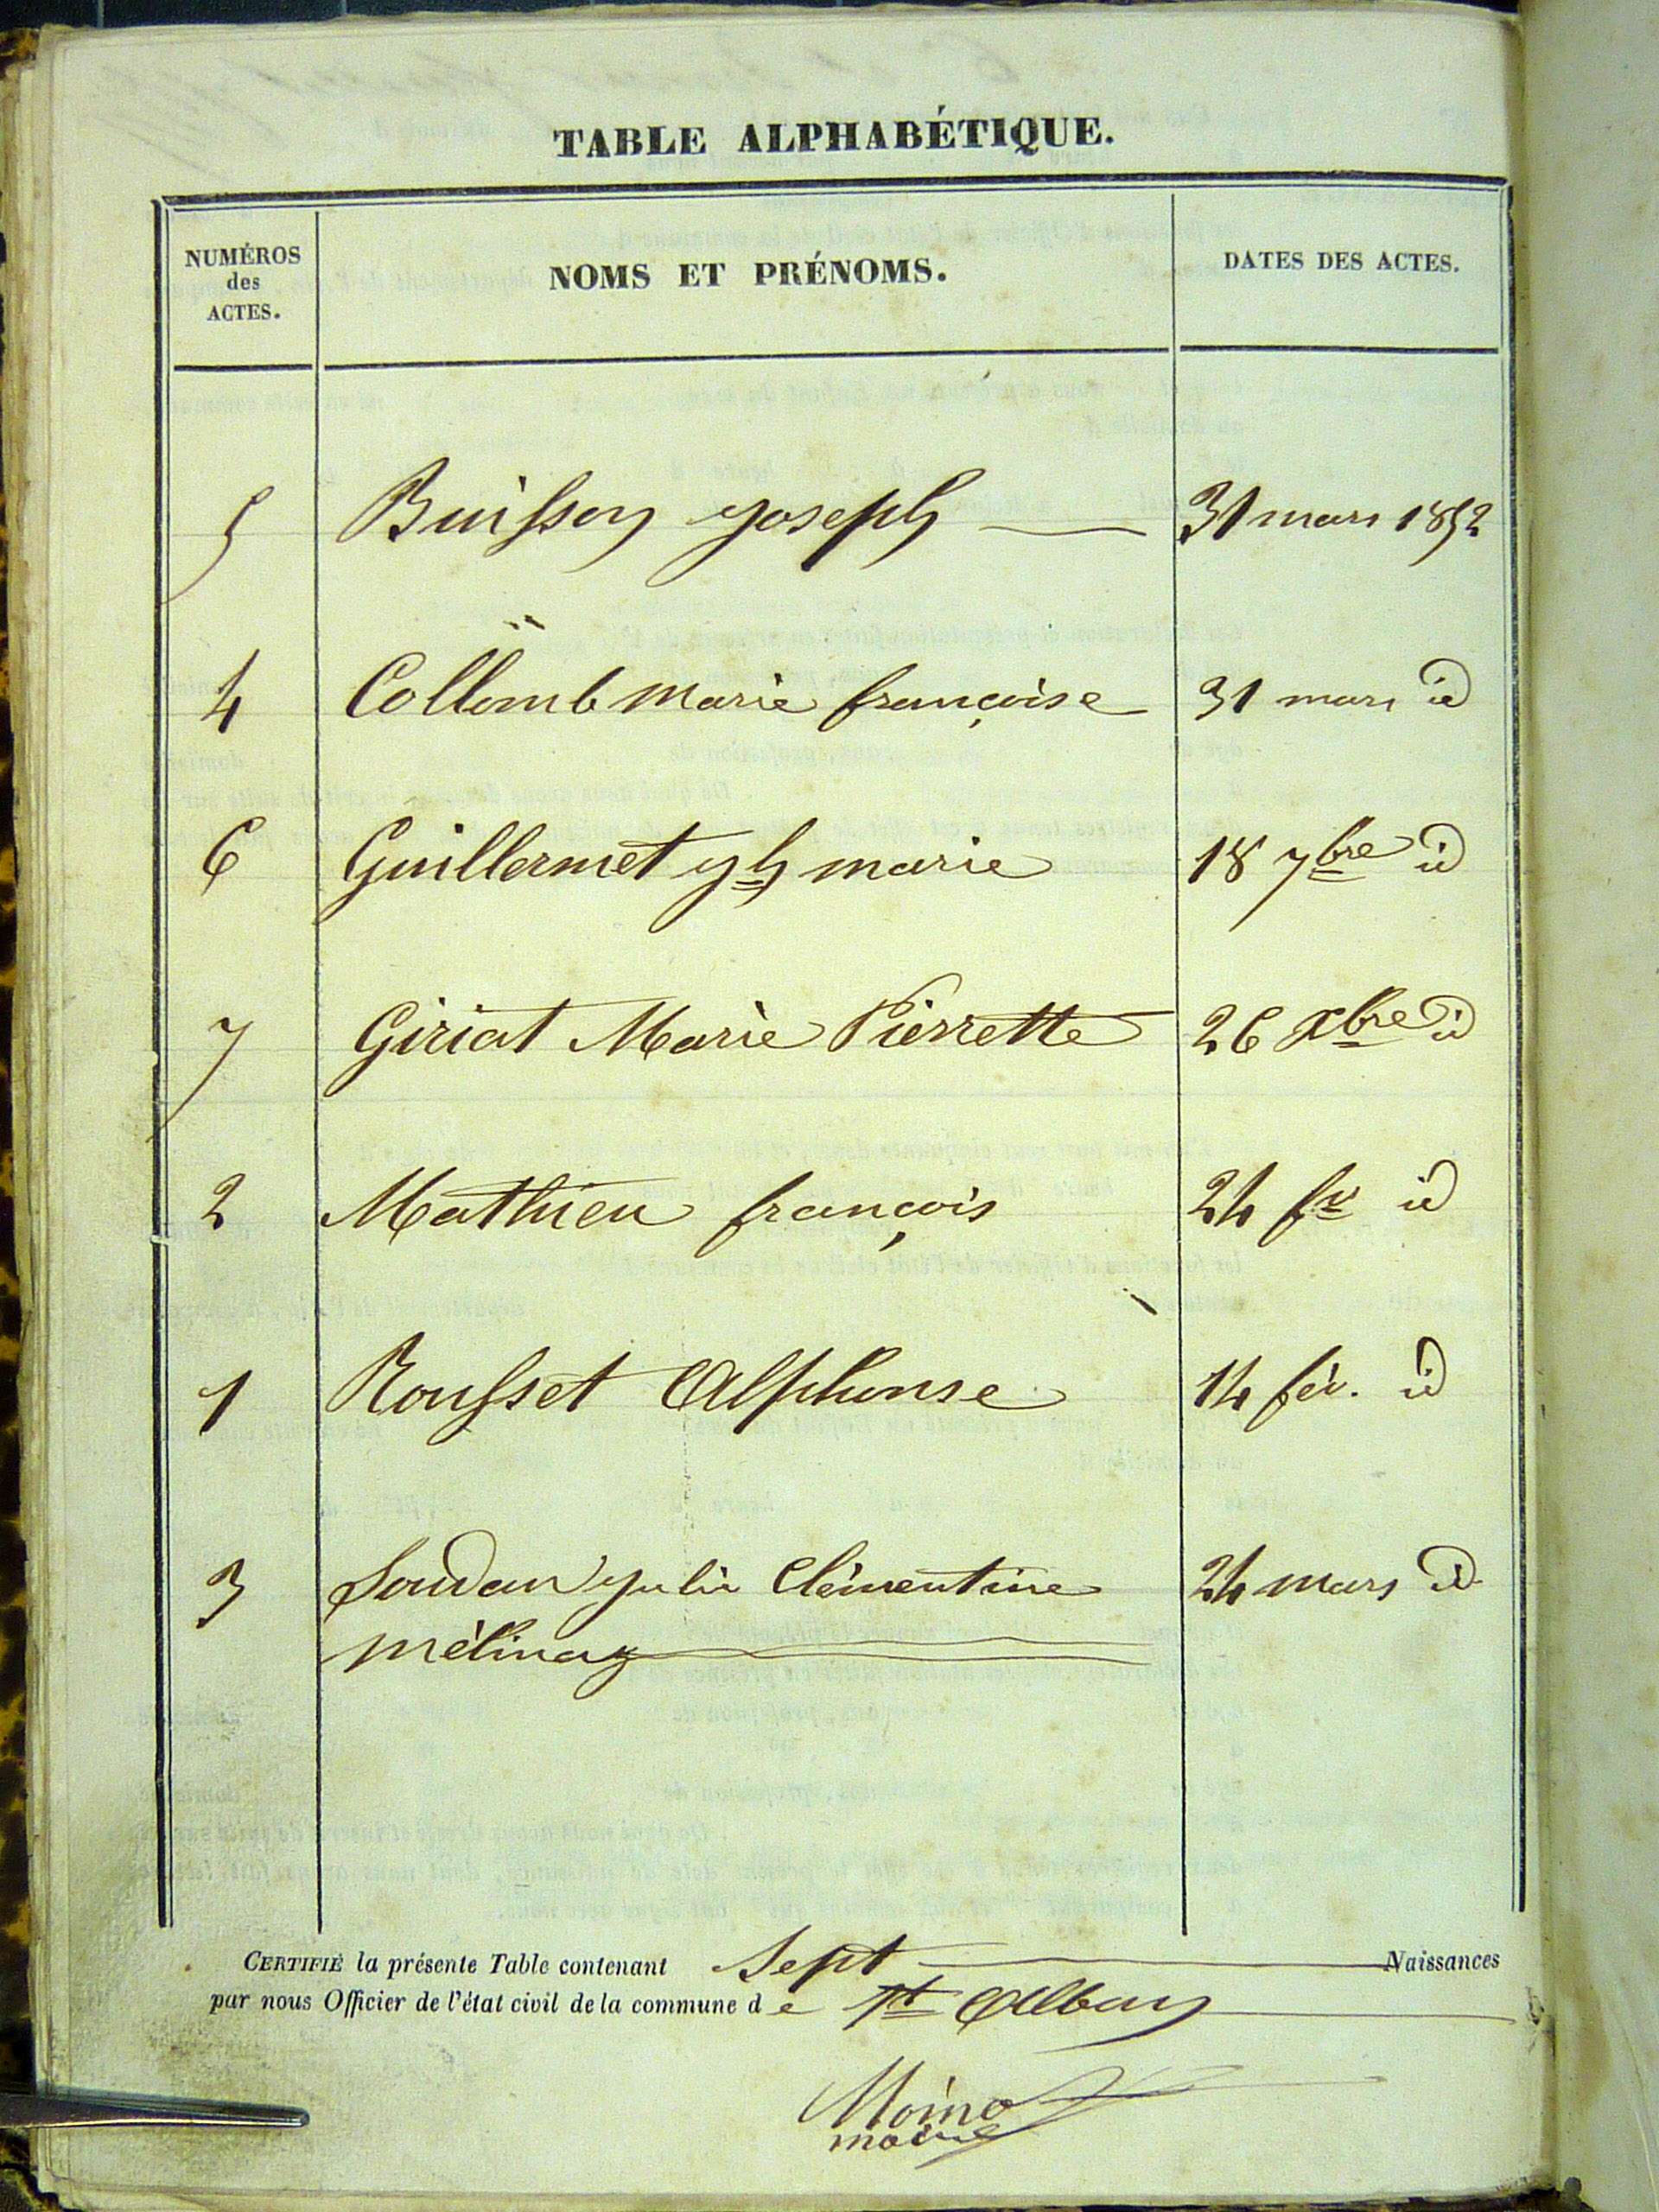 TABLE ALPHABÉTIQUE.
NUMÉROS
des
ACTES.
NOMS ET PRÉNOMS.
DATES DES ACTES.
5 Buisson Joseph 31 mars 1852
4 Collomb marie françoise 31 mars id
6 Guillermet Jh marie 18 7bre id
7 Giriat Marie Pierrette 26 Xbre id
2 Mathieu françois 24 fr id
1 Rousset Alphonse 14 fév. id
3 Soudan Julie Clémentine 24 mars id
CERTIFIÉ la présente Table contenant Sept Naissances
par nous Officier de l'état civil de la commune de St Alban
maire